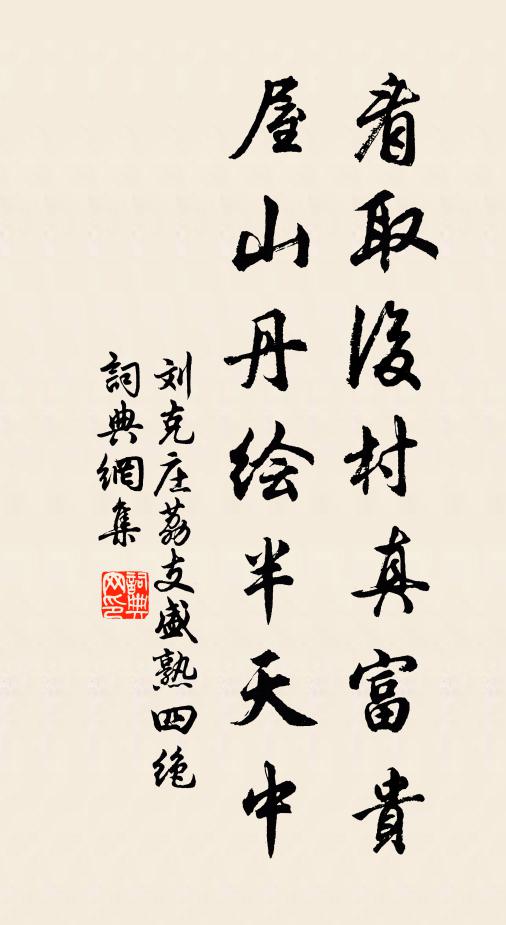 看取後村真富貴
屋山丹绘半天中
刘克庄荔支盛熟四绝
詞典網集
詞典网印